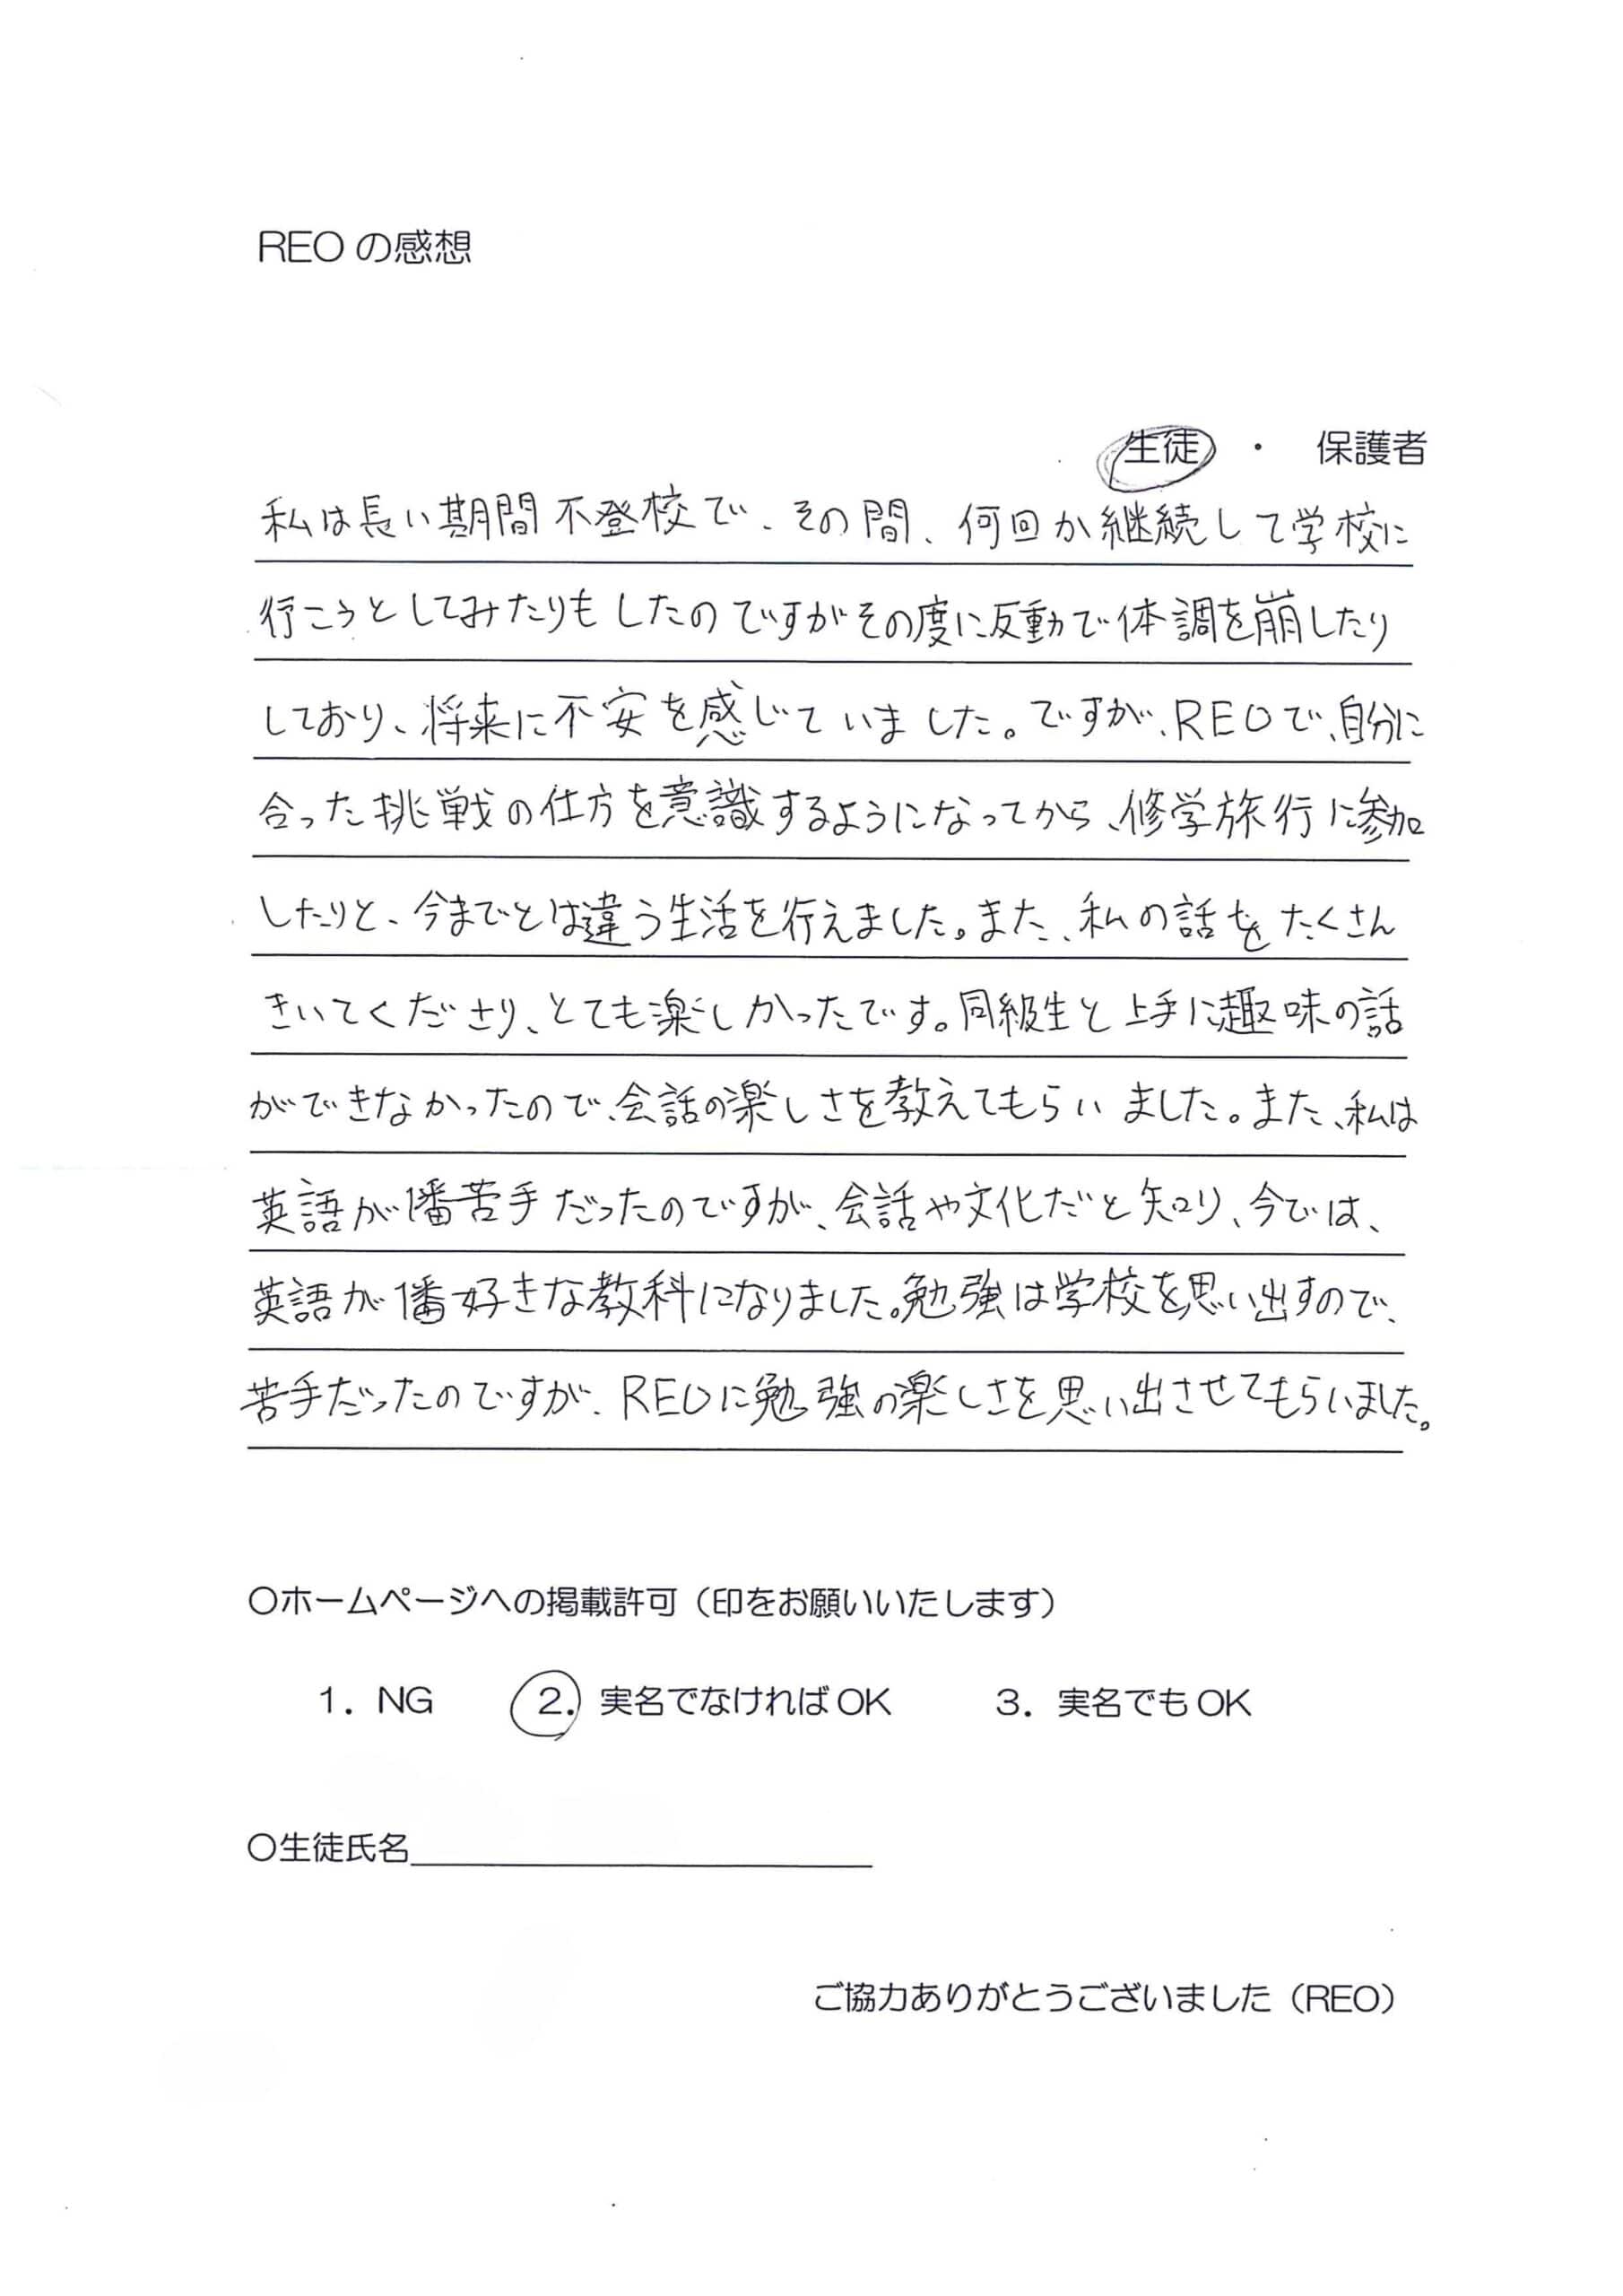 REOの感想
生徒 ・ 保護者
私は長い期間不登校で、その間、何回か継続して学校に
行こうとしてみたりもしたのですがその度に反動で体調を崩したり
しており、将来に不安を感じていました。ですが、REOで、自分に
合った挑戦の仕方を意識するようになってから、修学旅行に参加
したりと、今までとは違う生活を行えました。また、私の話をたくさん
きいてくださり、とても楽しかったです。同級生と上手に趣味の話
ができなかったので、会話の楽しさを教えてもらいました。また、私は
英語が1番苦手だったのですが、会話や文化だと知り、今では、
英語が1番好きな教科になりました。勉強は学校を思い出すので、
苦手だったのですが、REOに勉強の楽しさを思い出させてもらいました。
○ホームページへの掲載許可（印をお願いいたします）
1．NG 2．実名でなければOK 3．実名でもOK
○生徒氏名
ご協力ありがとうございました（REO）